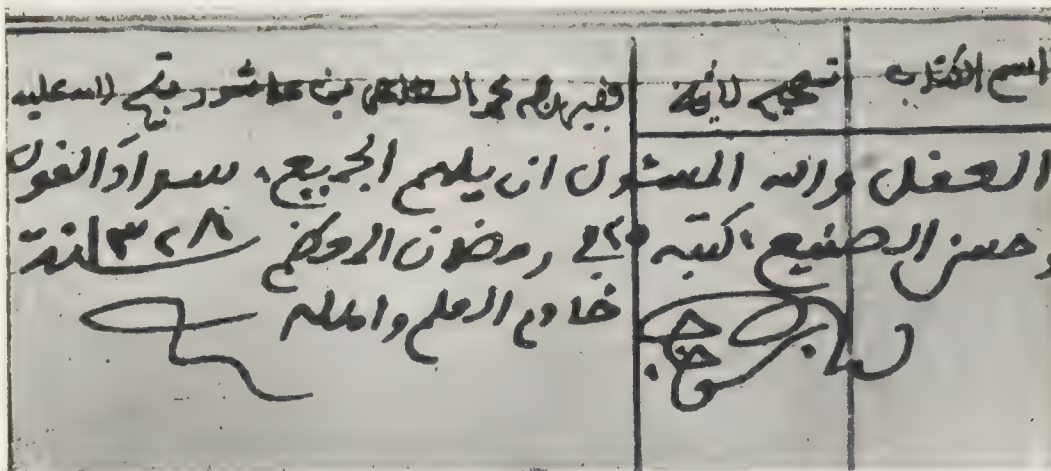 اسم الكتاب تصحيح تاريخ فقير ربه محمد الطاهر بن عاشور فتح الله عليه
العقل والله المسئول ان يلهم الجميع، سداد القول
وحسن الصنيع، كتبه في رمضان المعظم ١٣٢٨
خادم العلم والمله